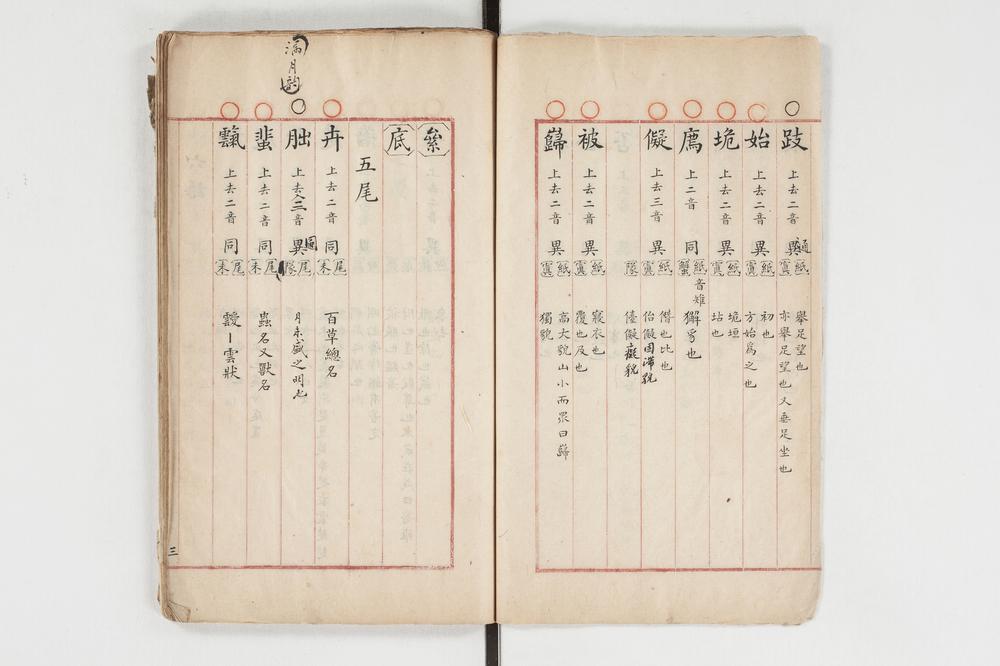 跂 上去二音 異通 紙寘 舉足望也
亦舉足望也又垂足坐也
始 上去二音 異 紙寘 初也
方始為之也
垝 上去二音 異 紙寘 垝垣
坫也
廌 上二音 同 紙蟹 音雉
獬豸也
儗 上去三音 異 紙寘隊 僭也比也
佁儗固滯貌
儓儗癡貌
被 上去二音 異 紙寘 寢衣也
覆也及也
巋 上去二音 異 紙寘 高大貌山小而眾曰巋
獨貌
縈
底
五尾
卉 上去二音 同 尾未 百草總名
滿月韻
朏 上去入三音 異同 尾隊 月未盛之明也
蜚 上去二音 同 尾未 蟲名又獸名
靅 上去二音 同 尾未 靉丨雲狀
三